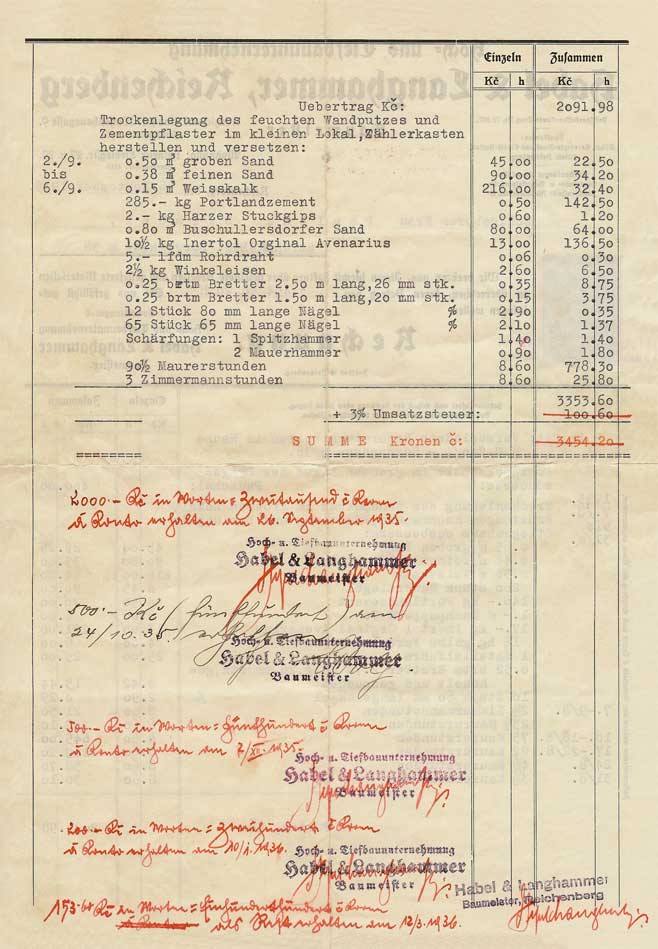 Einzeln Zusammen
Kč h Kč h
Uebertrag Kč: 2o91.98
Trockenlegung des feuchten Wandputzes und
Zementpflaster im kleinen Lokal, Zählerkasten
herstellen und versetzen:
2./9. o.5o m³ groben Sand 45.oo 22.5o
bis o.38 m³ feinen Sand 9o.oo 34.2o
6./9. o.15 m³ Weisskalk 216.oo 32.4o
285.- kg Portlandzement o.5o 142.5o
2.- kg Harzer Stuckgips o.6o 1.2o
o.8o m³ Buschullersdorfer Sand 8o.oo 64.oo
1o½ kg Inertol Orginal Avenarius 13.oo 136.5o
5.- lfdm Rohrdraht o.o6 o.3o
2½ kg Winkeleisen 2.6o 6.5o
o.25 brtm Bretter 2.5o m lang,26 mm stk. o.35 8.75
o.25 brtm Bretter 1.5o m lang,2o mm stk. o.15 3.75
12 Stück 8o mm lange Nägel % 2.9o o.35
65 Stück 65 mm lange Nägel % 2.1o 1.37
Schärfungen: 1 Spitzhammer 1.4o 1.4o
2 Mauerhammer o.9o 1.8o
9o½ Maurerstunden 8.6o 778.3o
3 Zimmermannstunden 8.6o 25.8o
3353.6o
+ 3% Umsatzsteuer: 1oo.6o
SUMME Kronen č: 3454.2o
2000.- Kč in Worten = Zweitausend č Kronen
à Konto erhalten am 26. September 1935.
Hoch- u. Tiefbauunternehmung
Habel & Langhammer
Baumeister
500.- Kč (fünfhundert) am
24/10.35 erhalten
Hoch- u. Tiefbauunternehmung
Habel & Langhammer
Baumeister
500.- Kč in Worten = Fünfhundert č Kronen
à Konto erhalten am 7/XI. 1935.
Hoch- u. Tiefbauunternehmung
Habel & Langhammer
Baumeister
200.- Kč in Worten = Zweihundert č Kronen
à Konto erhalten am 10/1. 1936.
Hoch- u. Tiefbauunternehmung
Habel & Langhammer
Baumeister
153.60 Kč in Worten = č Kronen
à Konto als Rest erhalten am 12/3. 1936.
Habel & Langhammer
Baumeister, Reichenberg